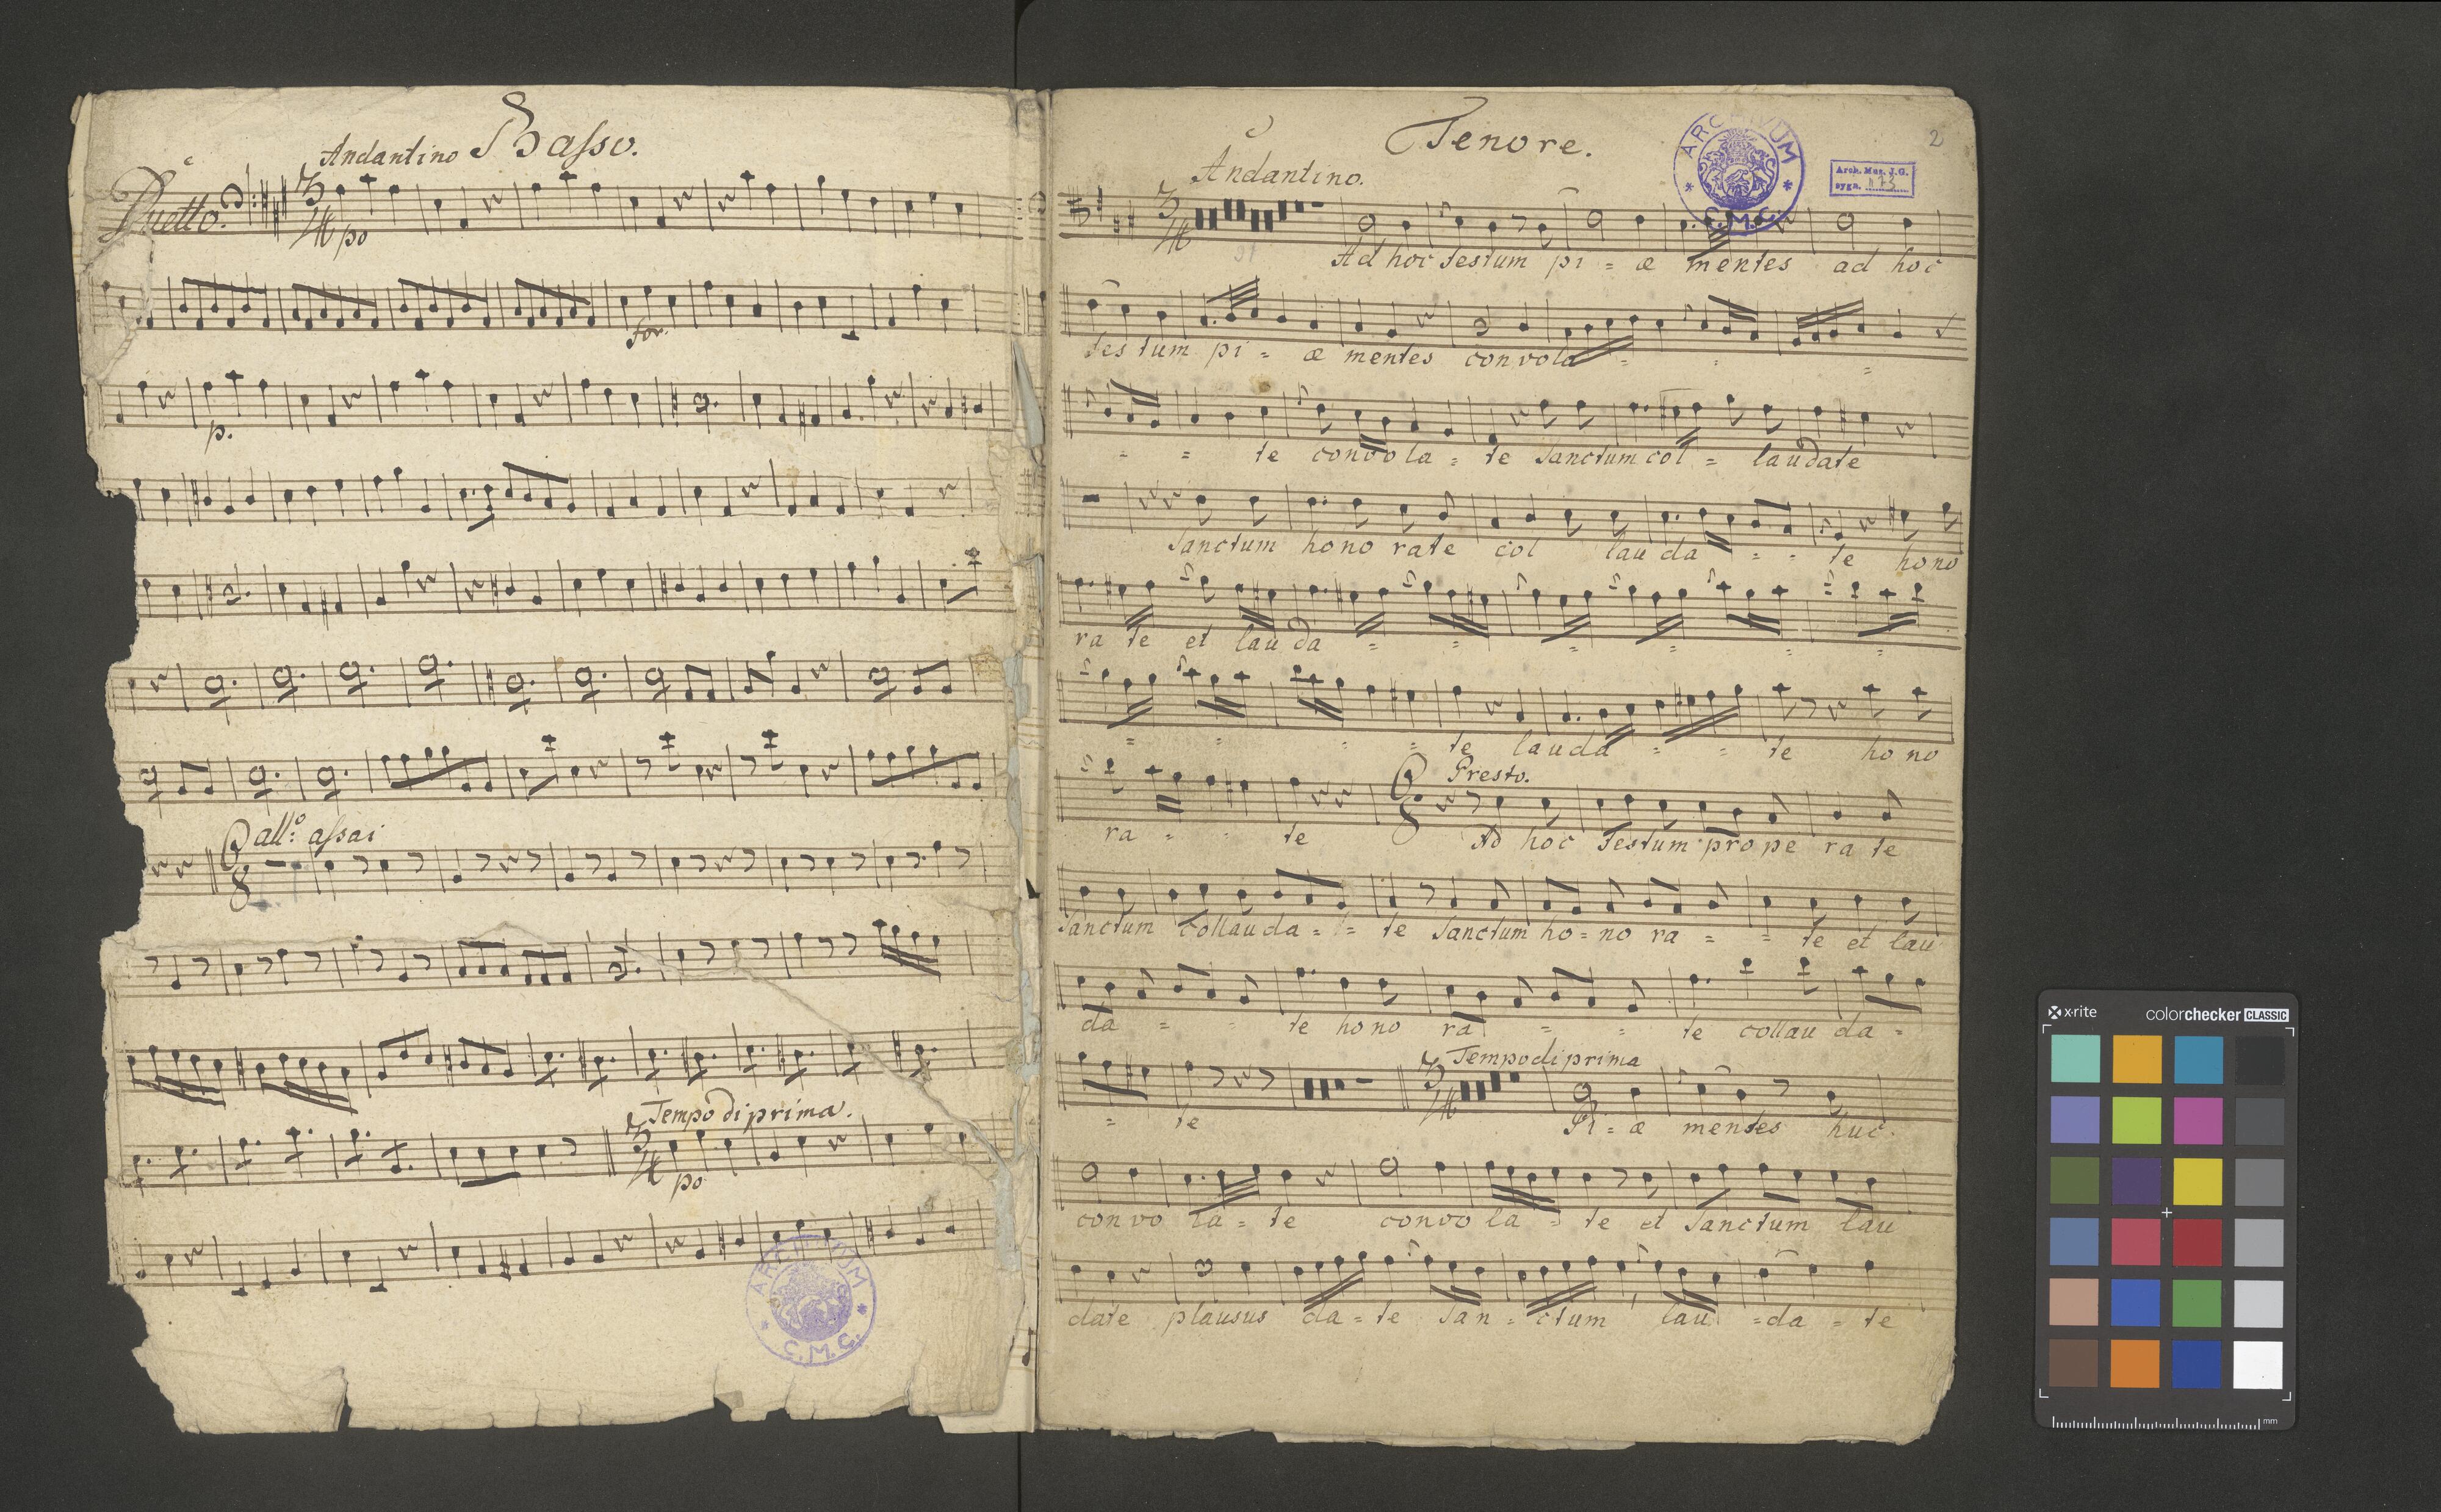 Andantino Basso.
Duetto.
3/4
po
for.
p.
all:o assai
6/8
Tempo di prima.
3/4
po
ARCHIVUM
C.M.C.
Tenore.
2
Andantino.
ARCHIVUM
C.M.C.
Arch. Mus. J.G.
sygn.
3/4
Ad hoc festum pi = æ mentes ad hoc
festum pi = æ mentes convola = = =
= = te convola = te Sanctum col = laudate
Sanctum hono rate col lau da = = te hono
ra te et lau da = = = = = =
= = = = te lauda = = te hono
Presto.
6/8
ra = = te Ad hoc festum prope ra te
Sanctum collauda = = te Sanctum ho = no ra = = te et lau
da = = te hono ra = = te collau da =
Tempo di prima
3/4
= te Pi = æ mentes huc
convo la = te convo la = te et Sanctum lau
date plausus da = te San = ctum lau = da = te
x-rite colorchecker CLASSIC
mm